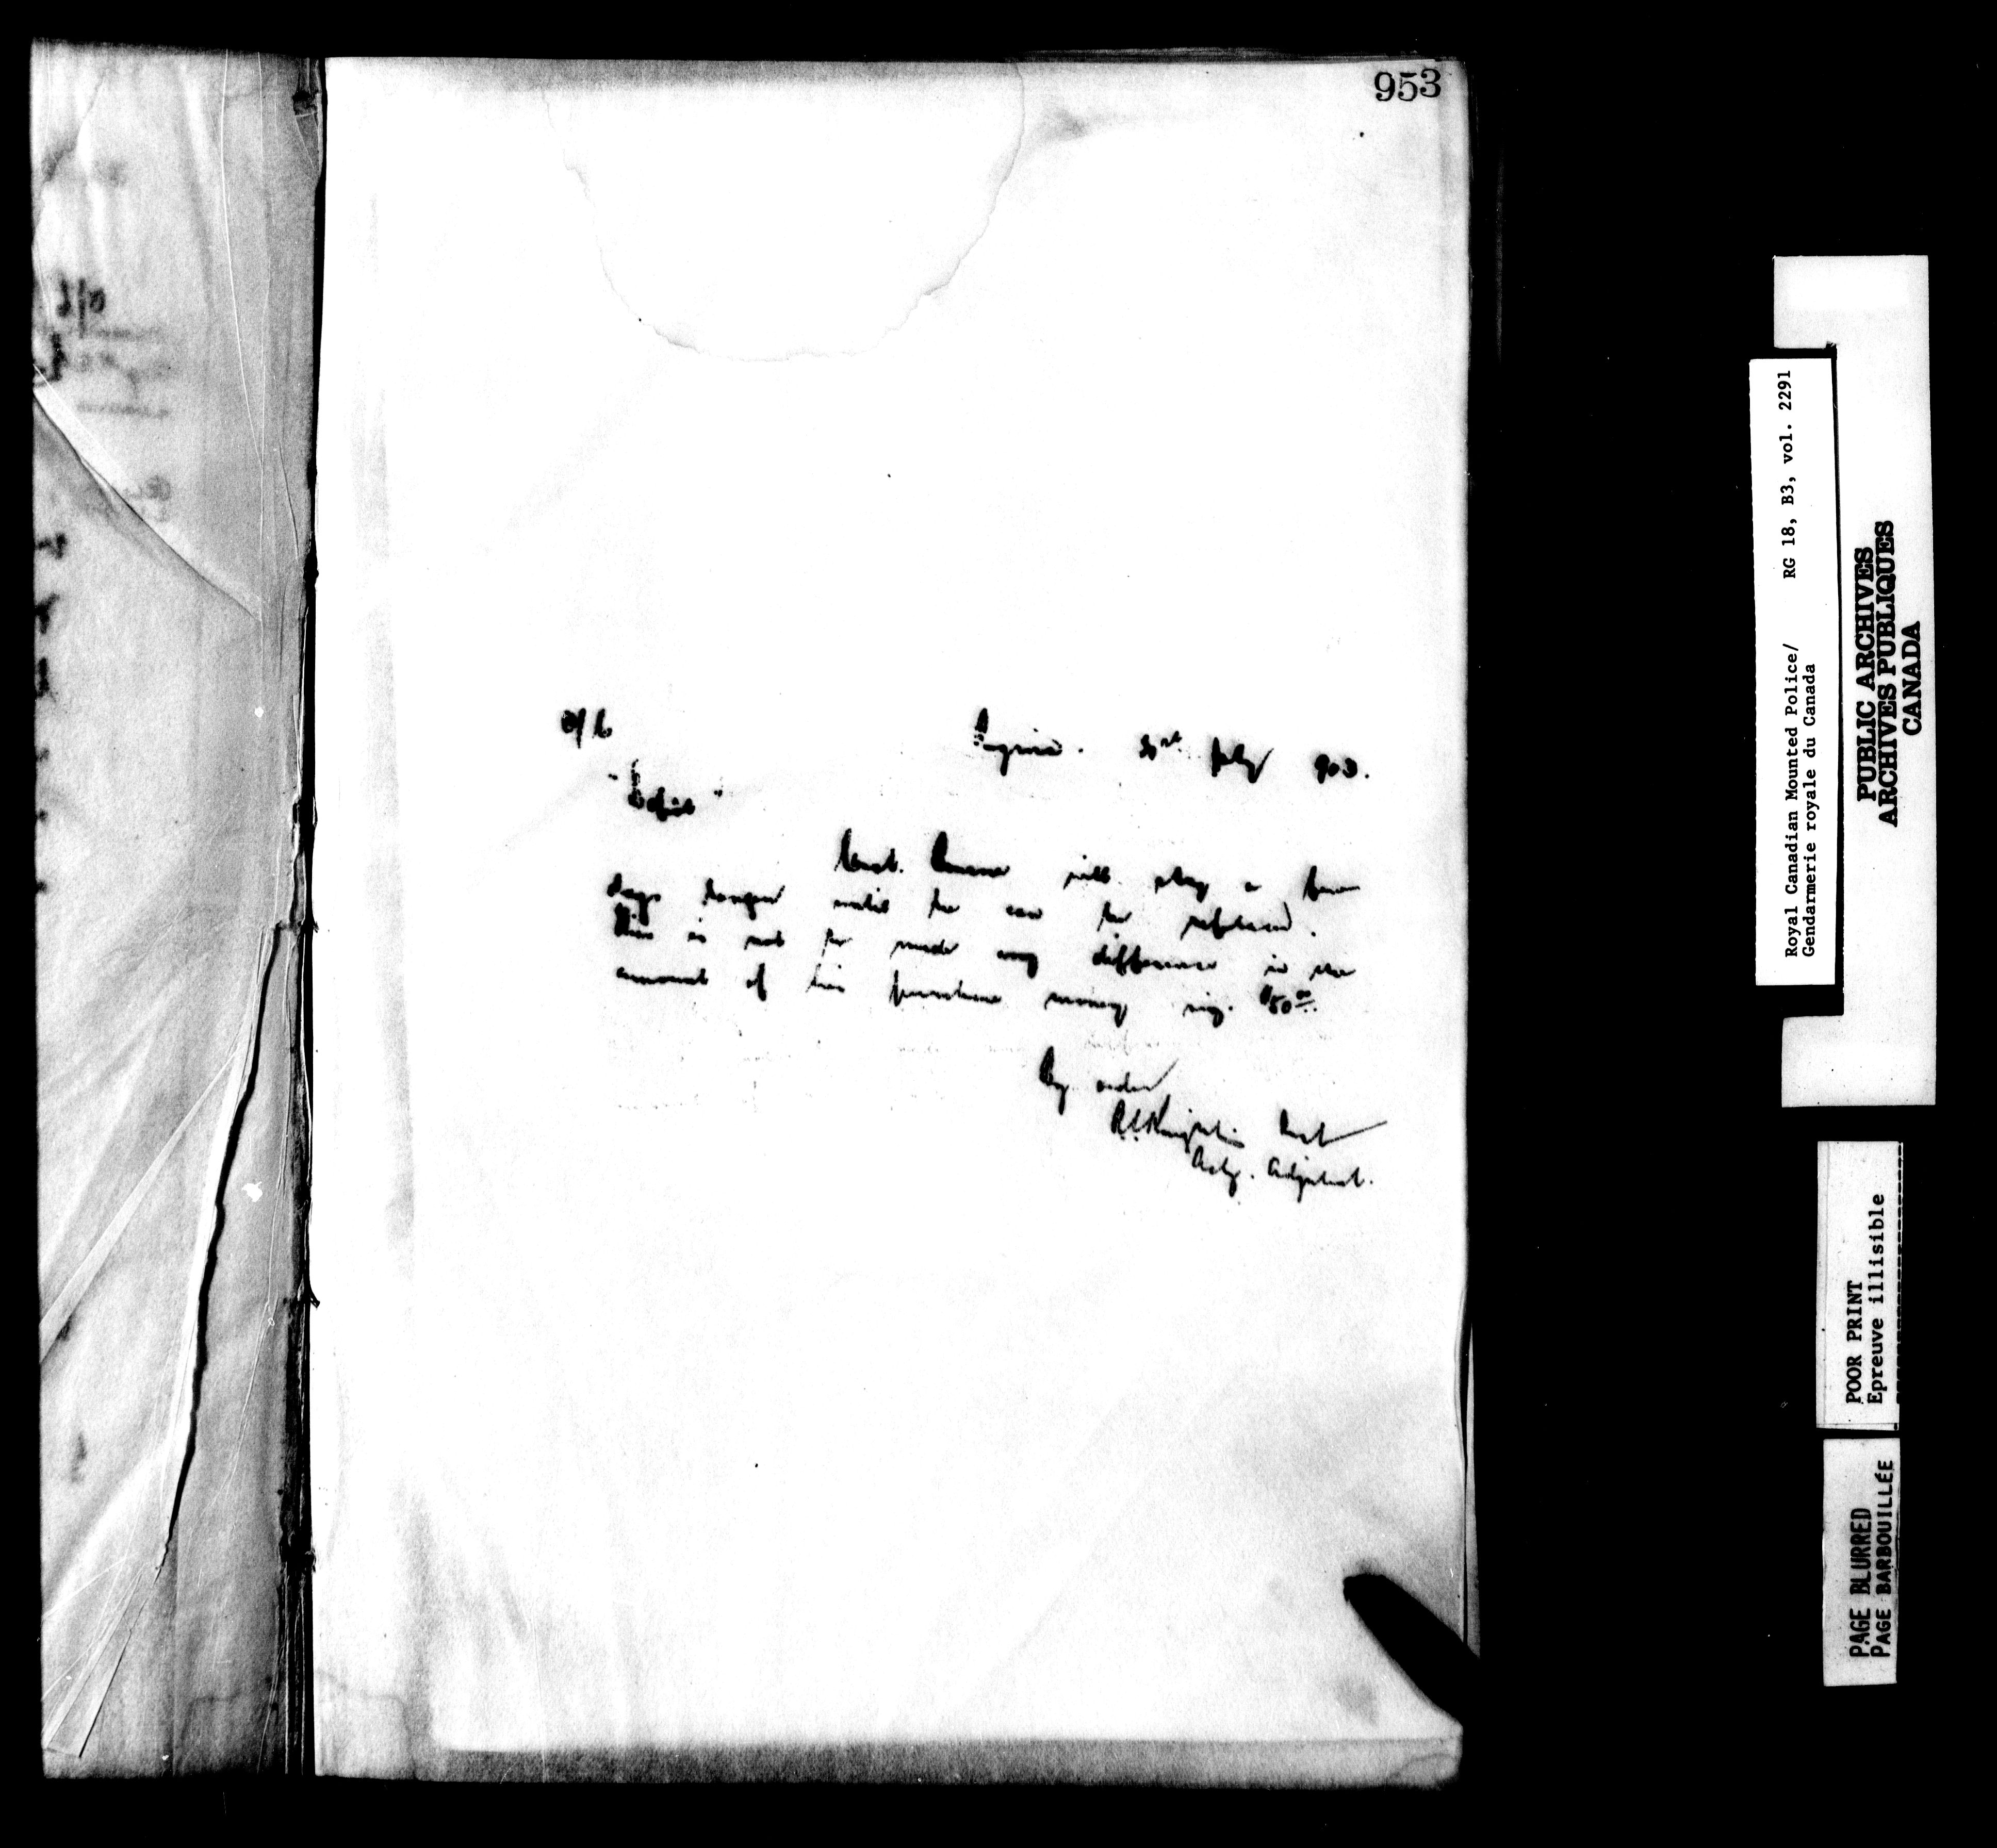 953
o/c
Regina. July 903.
"Depot"
Const. will stay a few
days longer until he can be replaced.
This is not to make any difference in the
amount of his purchase money viz. $50.00
By order
R.C. Knight Inst
Actg. Adjutant.
Royal Canadian Mounted Police/ RG 18, B3, vol. 2291
Gendarmerie royale du Canada
PUBLIC ARCHIVES
ARCHIVES PUBLIQUES
CANADA
POOR PRINT
Epreuve illisible
PAGE BLURRED
PAGE BARBOUILLÉE